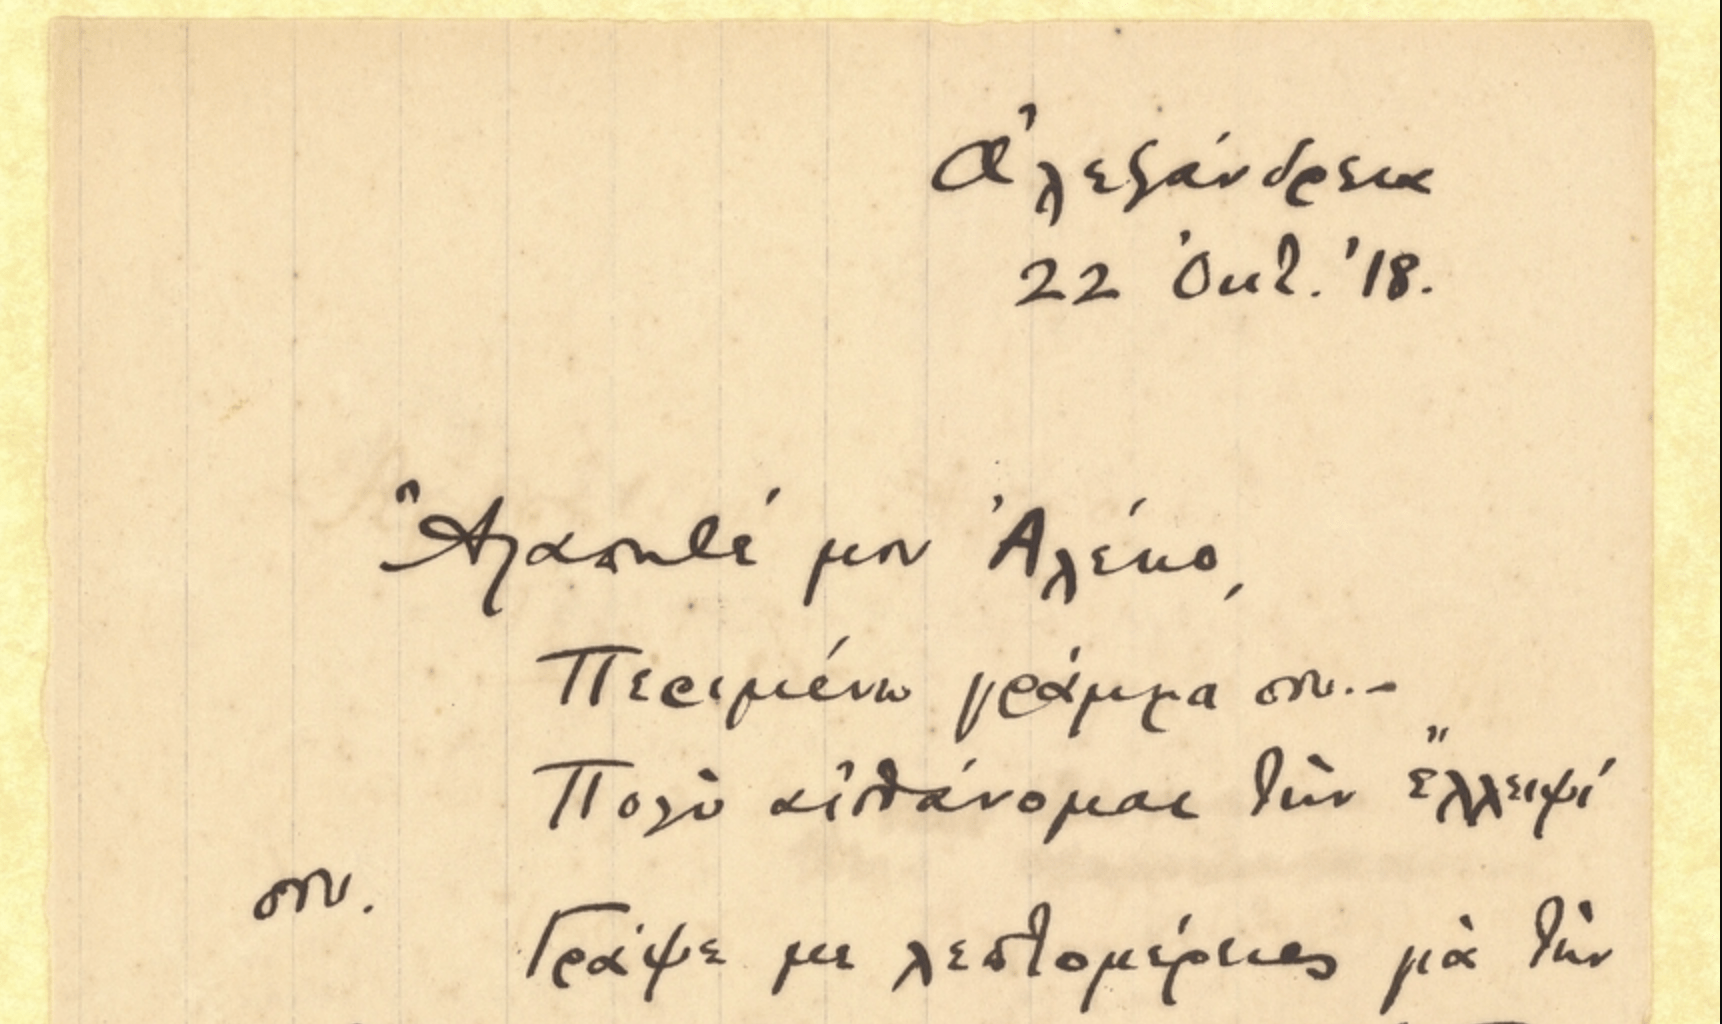 Ἀλεξάνδρεια
22 Ὀκτ. '18.
Ἀγαπητέ μου Ἀλέκο,
Περιμένω γράμμα σου.-
Πολὺ αἰσθάνομαι τὴν ἔλλειψί
σου.
Γράψε με λεπτομέρειες γιὰ τὴν